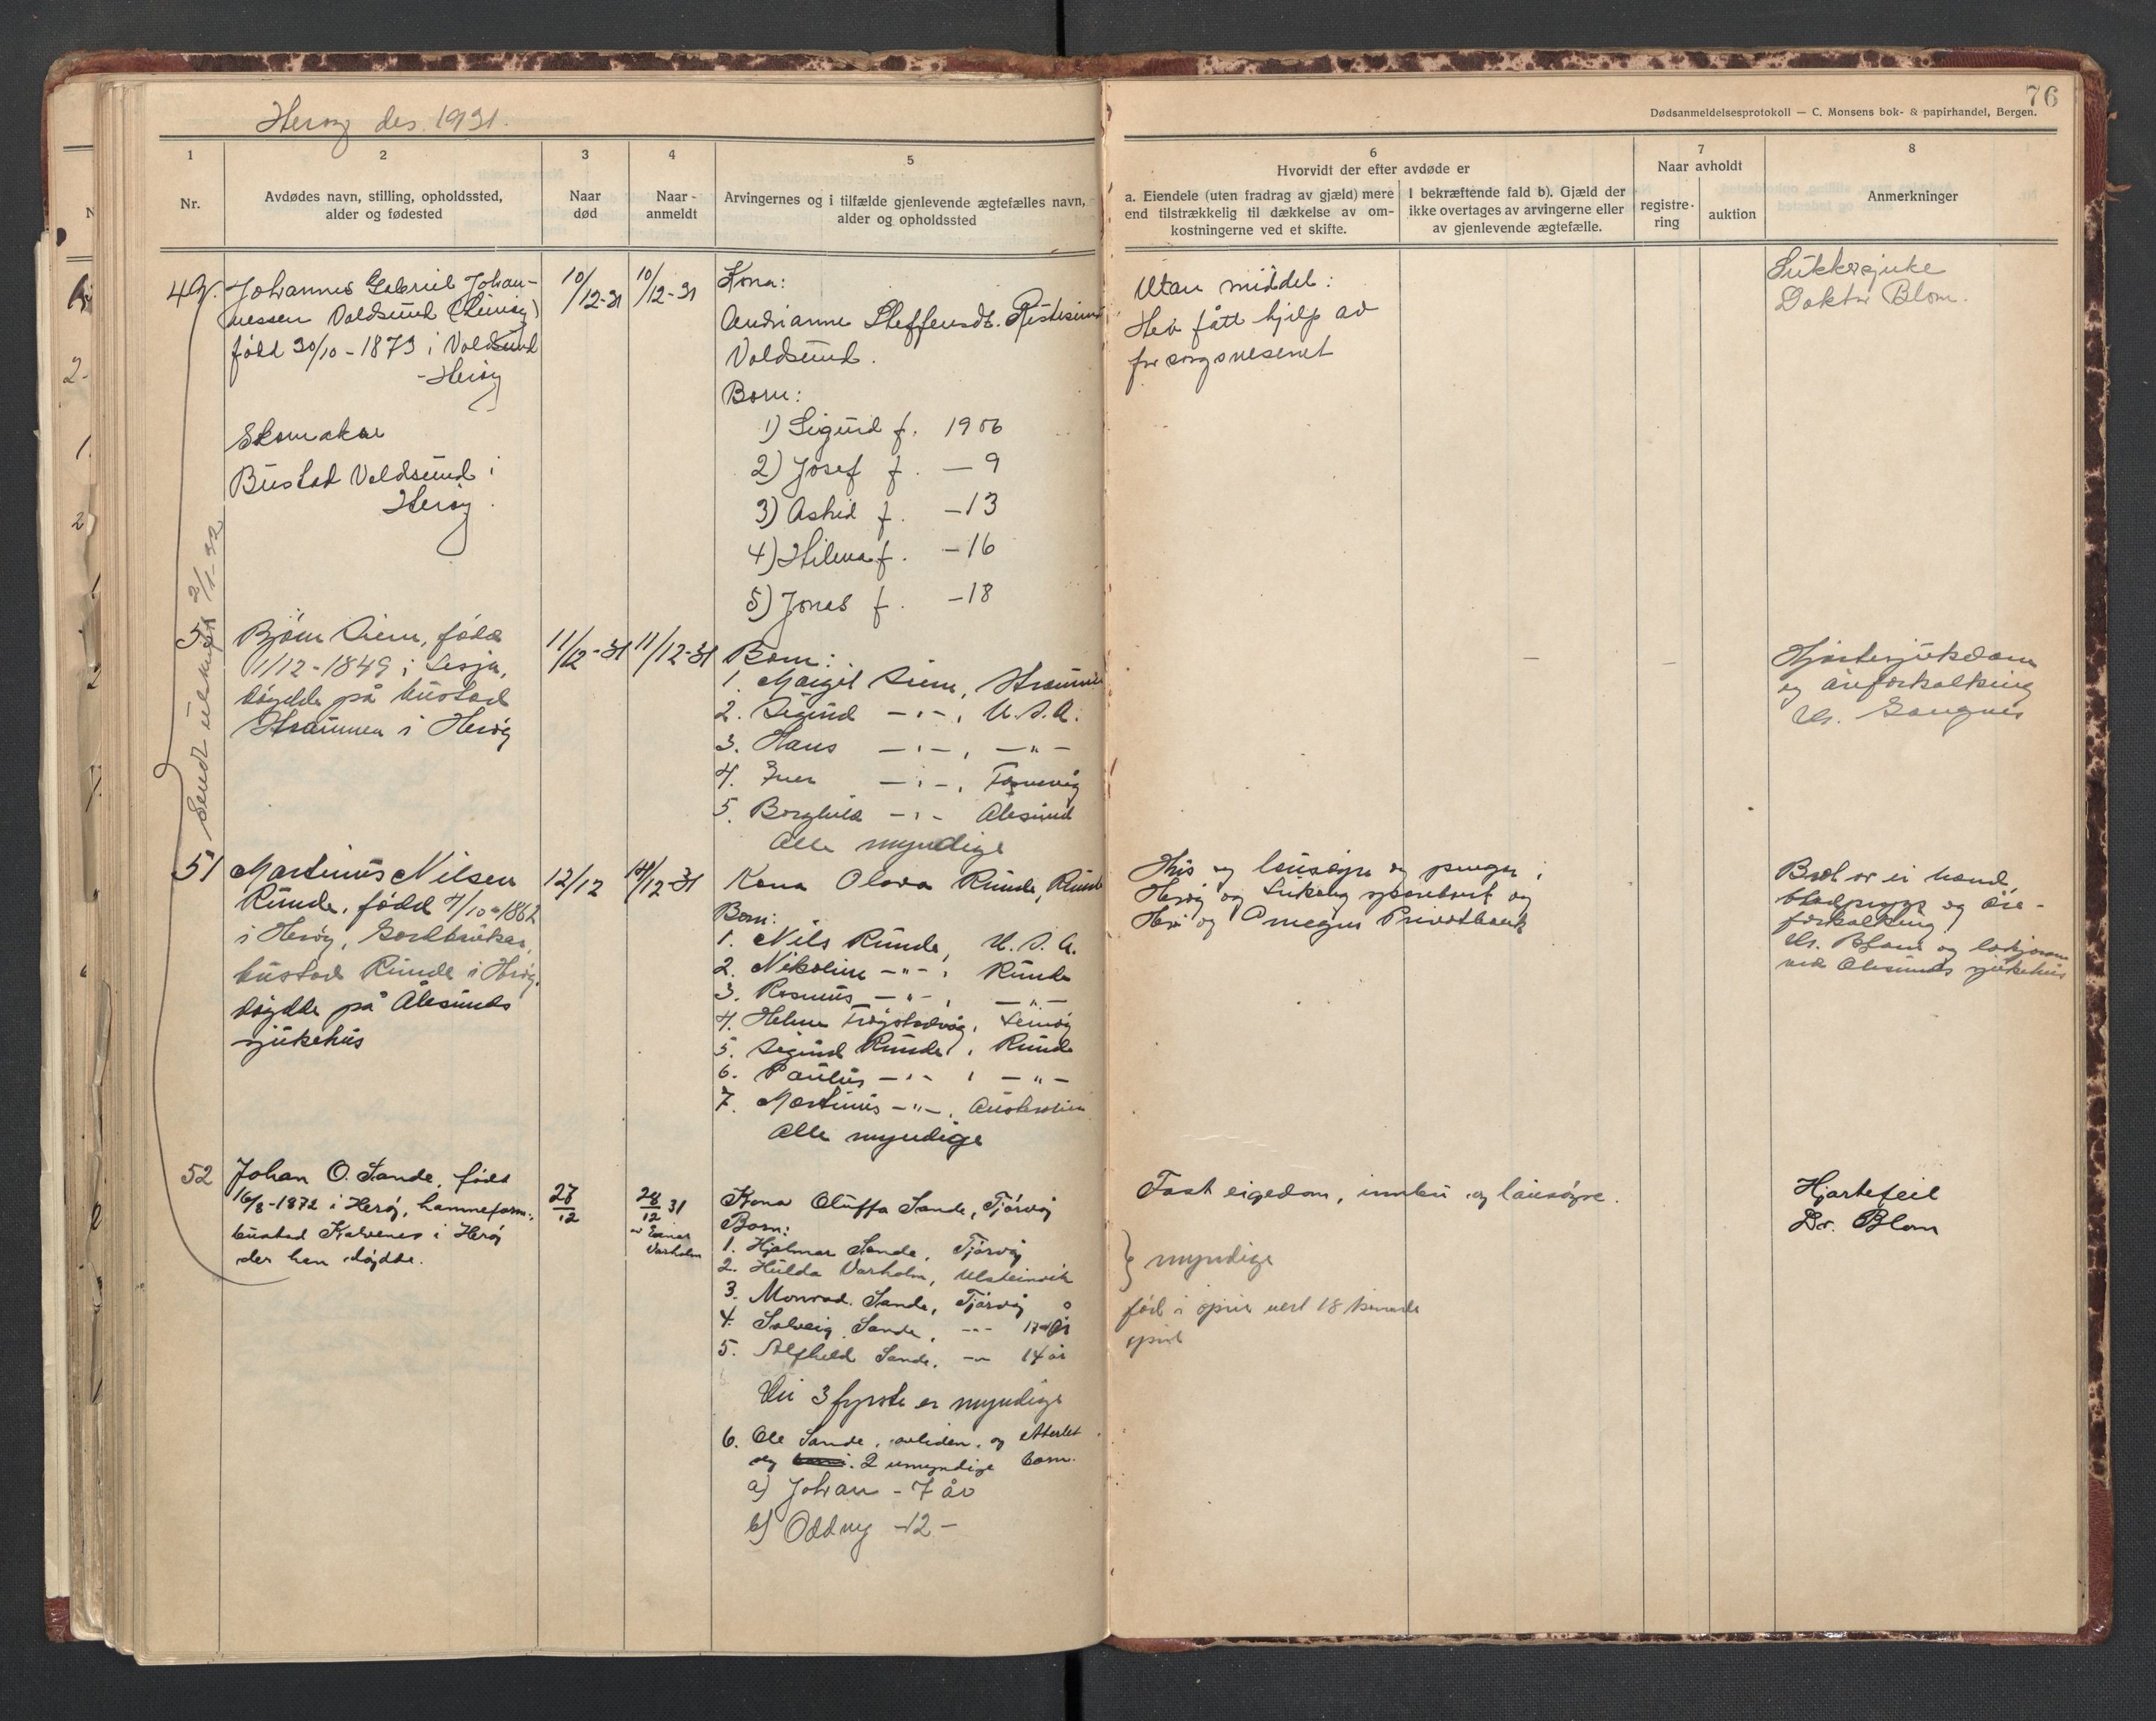 Herøy des. 1931.
76
Dødsanmeldelsesprotokoll — C. Monsens bok- & papirhandel, Bergen.
1
2
3
4
5
6
7
8
Nr.
Avdødes navn, stilling, opholdssted,
alder og fødested
Naar
død
Naar-
anmeldt
Arvingernes og i tilfælde gjenlevende ægtefælles navn,
alder og opholdssted
Hvorvidt der efter avdøde er
a. Eiendele (uten fradrag av gjæld) mere
end tilstrækkelig til dækkelse av om-
kostningerne ved et skifte.
I bekræftende fald b). Gjæld der
ikke overtages av arvingerne eller
av gjenlevende ægtefælle.
Naar avholdt
registre-
ring
auktion
Anmerkninger
49.
Johannes Gabriel Johan-
nessen Voldsund (Leinøy)
fødd 30/10-1873 i Voldsund
-Herøy
Skomakar
Bustad Voldsund i
Herøy.
10/12-31
10/12-31
Kona:
Andrianne Steffensdt.
Voldsund.
Born:
1) Sigurd f. 1906
2) Josef f. — 9
3) Astrid f. —13
4) Hilma f. —16
5) Jonas f. —18
Utan middel:
Hev fått hjelp av
forsorgsvesenet
Sukkersjuke
Doktor Blom.
Sendt 2/1-32
Bjørn Siem, fødd
1/12-1849 i Lesja,
døydde på bustad
Straumen i Herøy
11/12-31
11/12-31
Born:
1. Margit Siem,
2. Sigurd —"—, U.S.A.
3. Hans —"—, —"—
4. Iver —"—,
5. Borghild —"— Ålesund
Alle myndige
—
—
Hjartesjukdom
og åreforkalking
Dr. Gangnes
51
Martinus Nilsen
Runde, fødd 4/10-1862
i Herøy, Gardbrukar,
bustad Runde i Herøy.
døydde på Ålesunds
sjukehus
12/12
12-31
Kona Olava Runde, Runde
Born:
1. Nils Runde, U.S.A.
2. Nikoline —"—, Runde
3. Rasmus —"—, —"—
4. Helene Leinøy
5. Sigurd Runde, Runde
6. Paulus —"—, —"—
7. Martinus —"—, Australien
Alle myndige
Hus og lausøyre og pengar i
Herøy og sparebank og
og Omegns Privatbank
Brot av ei hand,
og åre-
forkalking
Dr. Blom og
ved Ålesunds sjukehus
52
Johan O. Sande, fødd
16/8-1872 i Herøy, hamneform.,
bustad Kalvenes i Herøy
der han døydde.
27/12
28/12 31
v Einar
Varholm
Kona Oluffa Sande, Tjørvåg
Born:
1. Hjalmar Sande, Tjørvåg
2. Hulda Varholm, Ulsteinvik
3. Monrad Sande, Tjørvåg
4. Solveig Sande, —"— 17 år
5. Alfhild Sande, —"— 14 år
Dei 3 fyrste er myndige
6. Ole Sande, avliden, og etterlet
seg 2 umyndige born.
a) Johan - 7 år
b) Oddny -12-
Fast eigedom, innbu og lausøyre.
} myndige
fød i april vert 18
april
Hjartefeil
Dr. Blom